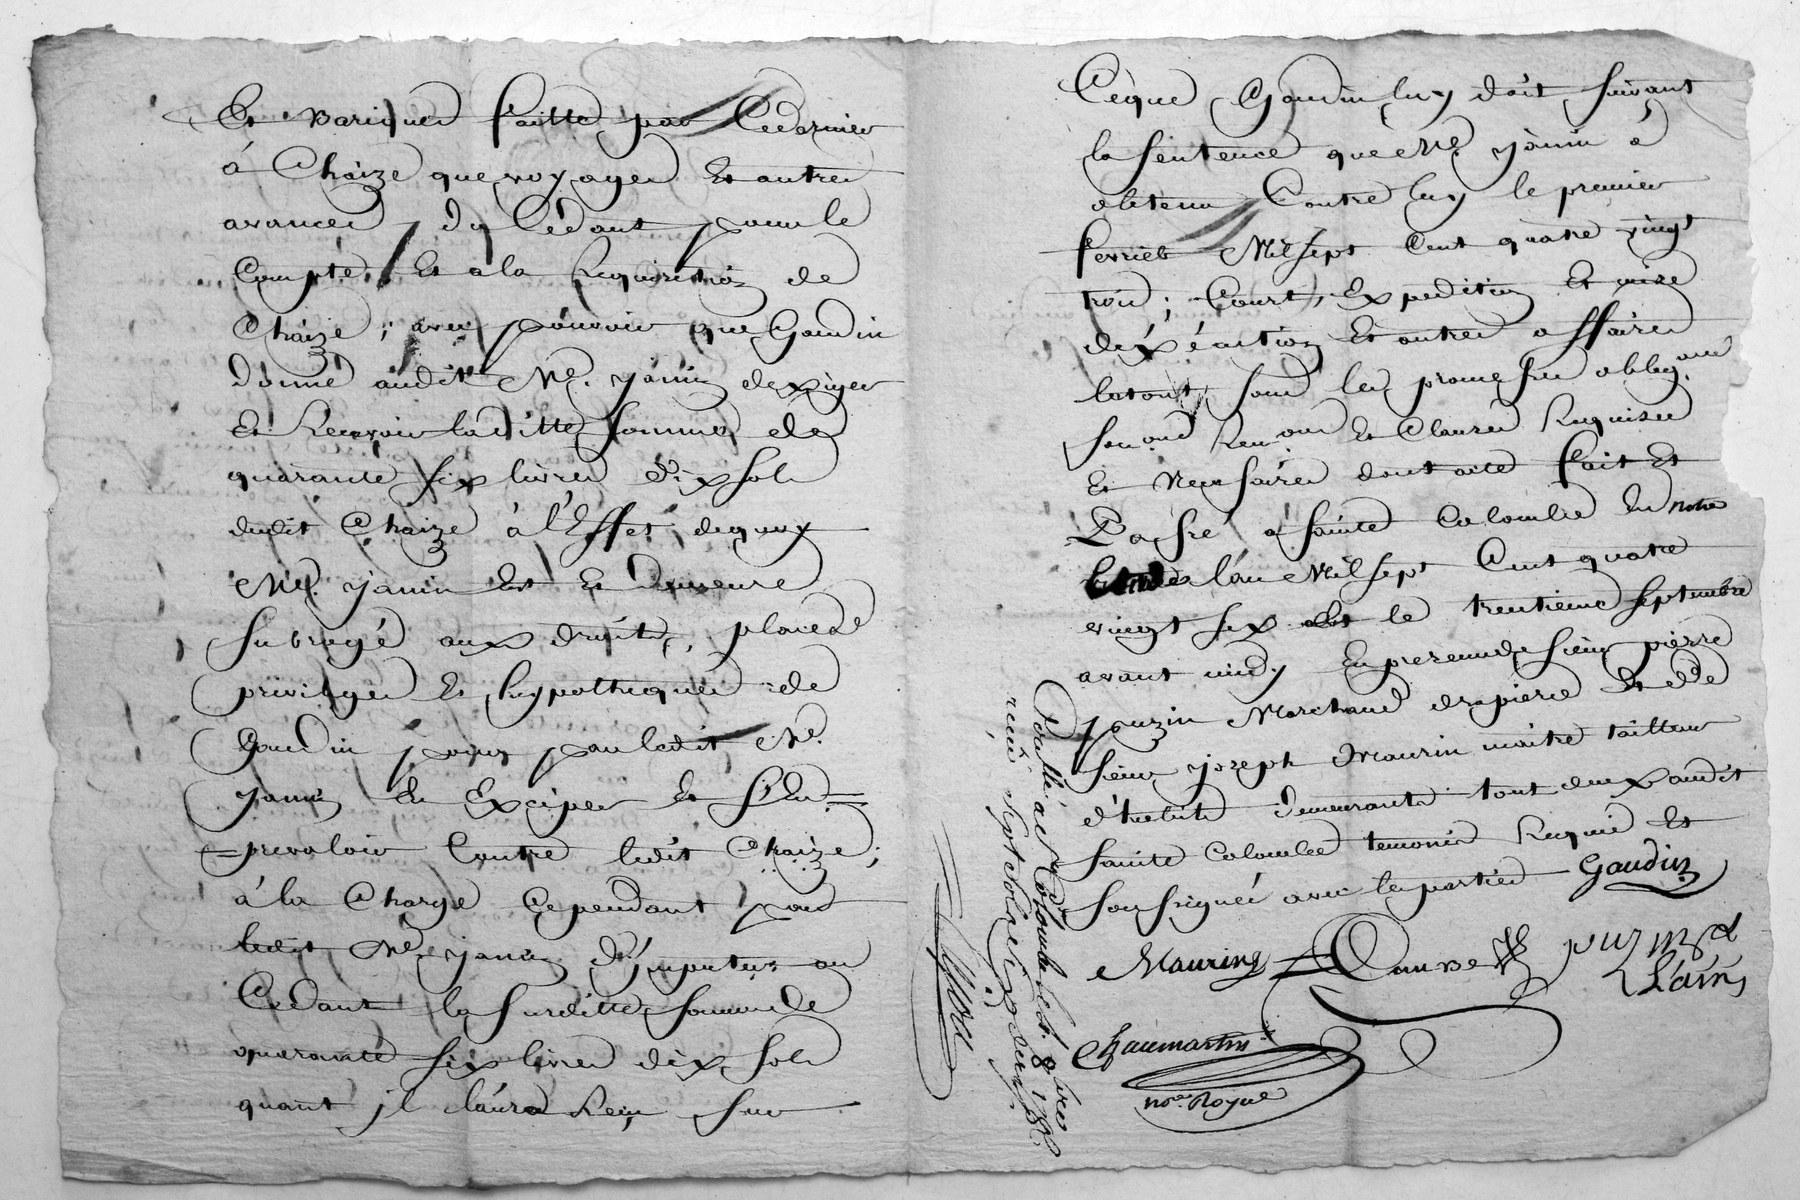 Et Bariques faitte par Ledernier
á Chaize que voyages Et autres
avances du Cédant pour le
Compte, Et a la Requisition de
Chaize; avec pouvoir que Gaudin
donne audit Me. janin dexiger
Et Recevoir laditte somme de
quarante six livres dix sols
dudit Chaize á l'Effet dequoy
Me. janin Est Et demeure
subrogé aux droits, place de
privileges Et hypotheques de
Gaudin pour par ledit Me.
janin En Exciper Et s'En
prevaloir Contre ledit Chaize;
á la Charge Cependant par
ledit Me janin d'jmputer au
Cedant la surditte somme de
quarante six livres dix sols
quant jl l'aura Reçu sur
Ceque Gaudin luy doit suivant
la sentence que Me. janin á
obtenu Contre luy le premier
fevrier Mil sept Cent quatre vingt
trois; Court, Expedition Et mise
déxécution Et autres affaires
letout sous les promesses obligons
soumons Renons Et Clauses Requises
Et Necessaires dont acte fait Et
Passé á sainte Colombe En notre
Etude l'an Mil sept Cent quatre
vingt six Et le trentieme septembre
avant midy En presence de sieur pierre
jouzin Marchand drapierre Et de
sieur joseph Maurin maitre tailleur
d'habits demeurants tout deux audit
sainte Colombe temoins Requis Et
soussignés avec les parties Gaudin
Maurin jouzin
L'ain
Chaumartin
nore Royal
Conllé á ste Colombe le 8 8bre 1786
reçu sept sols six deniers